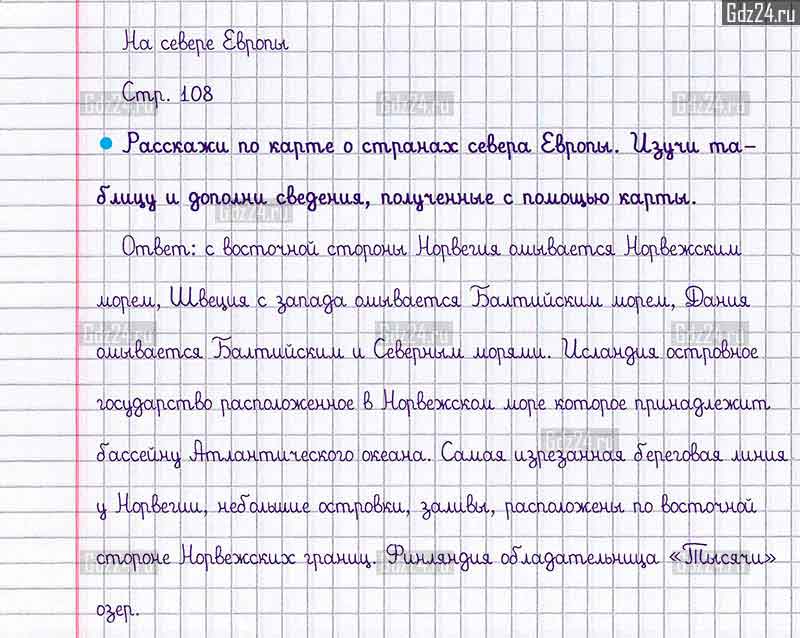 Gdz24.ru
На севере Европы
Стр. 108
Расскажи по карте о странах севера Европы. Изучи та-
блицу и дополни сведения, полученные с помощью карты.
Ответ: с восточной стороны Норвегия омывается Норвежским
морем, Швеция с запада омывается Балтийским морем, Дания
омывается Балтийским и Северным морями. Исландия островное
государство расположенное в Норвежском море которое принадлежит
бассейну Атлантического океана. Самая изрезанная береговая линия
у Норвегии, небольшие островки, заливы, расположены по восточной
стороне Норвежских границ. Финляндия обладательница «Тысячи»
озер.